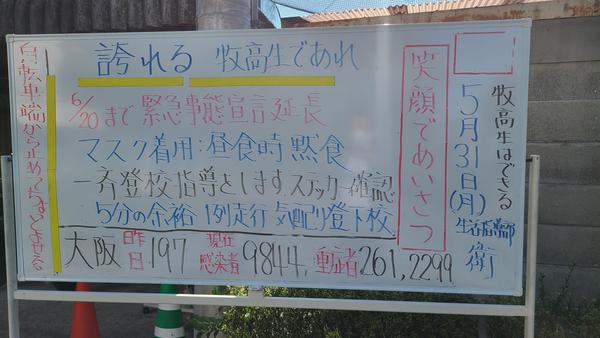 誇れる 牧高生であれ
6/20まで 緊急事態宣言延長
マスク着用:昼食時 黙食
一斉登校指導をします ステッカー確認
5分の余裕 1列走行 気配り登下校
大阪 昨日 197 現在感染者 9844, 重症者 261, 2299
笑顔であいさつ
牧高生はできる
5月31日(月)
生活指導部
衛
自転車端から止めてちゃんとよせる